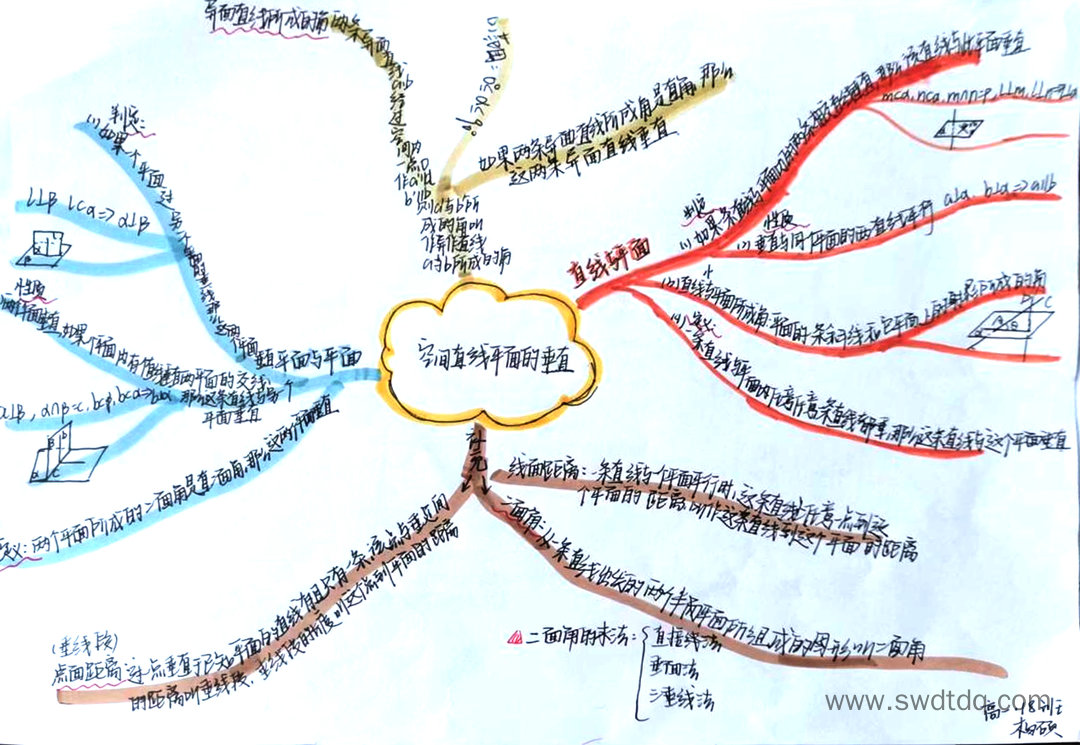 空间直线平面的垂直
异面直线所成的角
两条异面直线a,b
经过空间
一点O
作a'∥a
b'∥b
则a'与b'所
成的角叫
作异面直线
a与b所成的角
范围:
如果两条异面直线所成角是直角,那么
这两条异面直线垂直
直线与平面
判定
(1)如果一条直线与平面内的两条相交直线垂直,那么该直线与此平面垂直
m⊂α,n⊂α,m∩n=P,l⊥m,l⊥n⇒l⊥α
性质
(2)垂直与同一个平面的两直线平行
a⊥α,b⊥α⇒a∥b
直线与平面所成角:平面的一条斜线和它平面上的射影所成的角
定义:
一条直线与平面内任意一条直线都垂直,那么这条直线与这个平面垂直
平面与平面
判定:
(1)如果一个平面
过另一个平面
的垂线,那么这两个平面
垂直
l⊥β l⊂α⇒α⊥β
性质
两个平面垂直,如果一个平面内有一直线垂直两平面的交线,
那么这条直线与另一个
平面垂直
α⊥β,α∩β=c,b⊂β,b⊥c⇒b⊥α
定义:两个平面所成的二面角是直二面角,那么这两个平面垂直
补充
线面距离:一条直线与一个平面平行时,这条直线上任意一点到这
个平面的距离叫作这条直线到这个平面的距离
二面角:从一条直线出发的两个半平面所组成的图形叫二面角
二面角的求法:
直接线法
垂面法
三垂线法
(垂线段)
点面距离
过一点垂直于已知平面的直线有且只有一条,该点与垂足间
的距离叫垂线段,垂线段的长度叫这个点到平面的距离
www.swdtdq.com